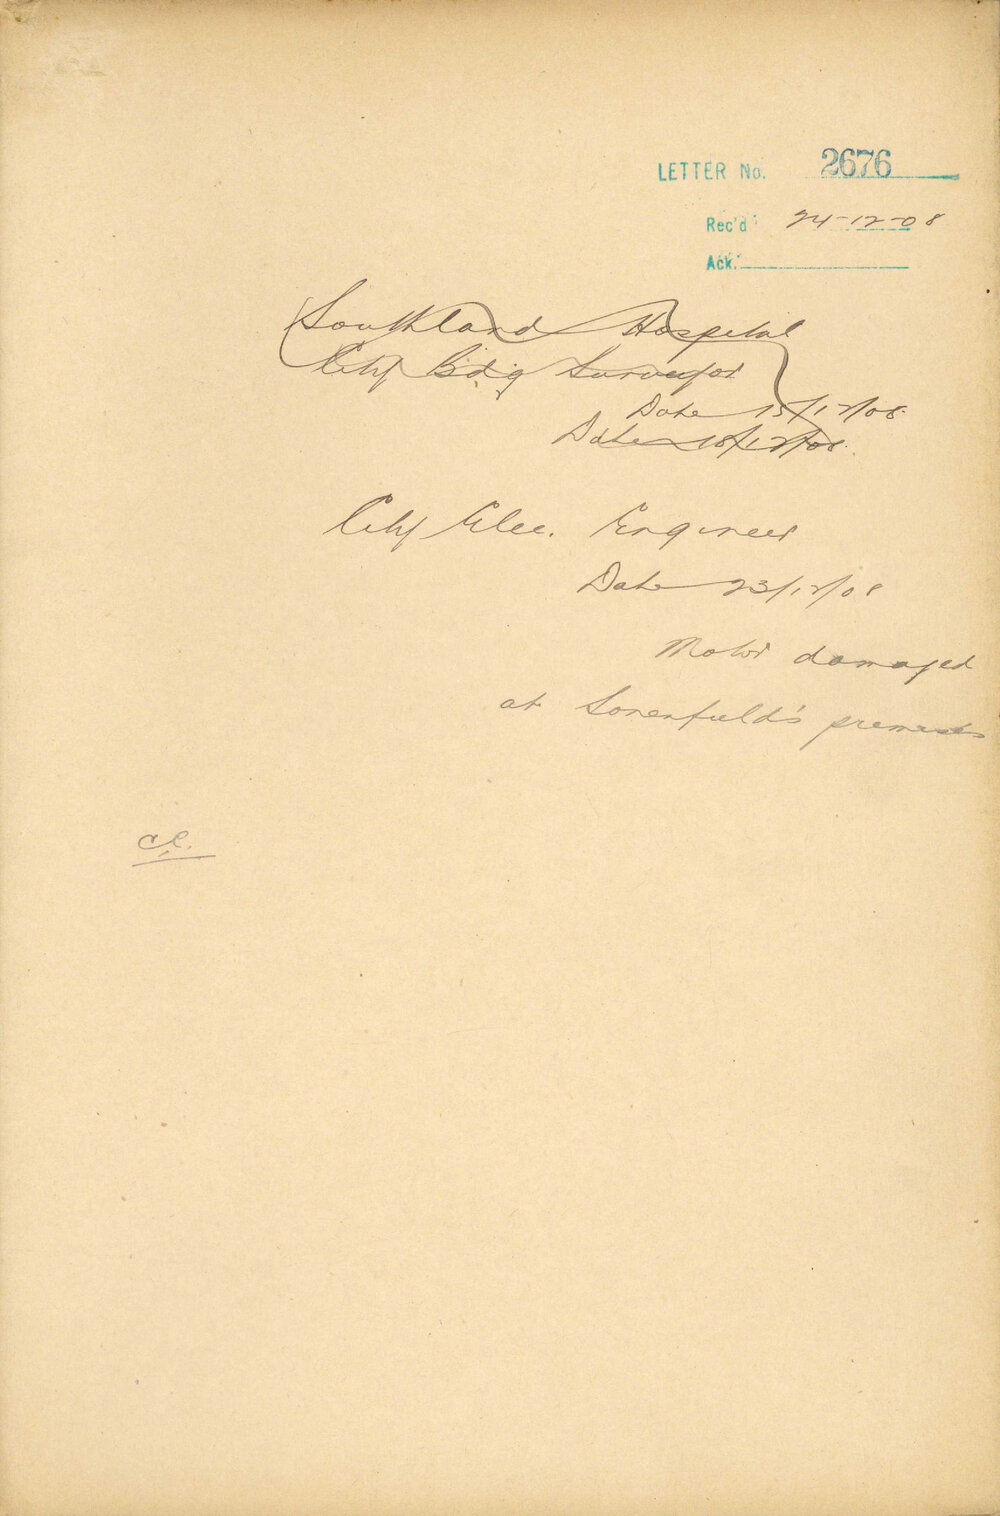 LETTER No. 2676
Rec'd 24-12-08
Ack.
Southland Hospital
City Bdg Surveyor
Date 15/12/08.
Date 18/12/08.
City Elec. Engineer
Date 23/12/08
Motor damaged
at Sonenfield's premises